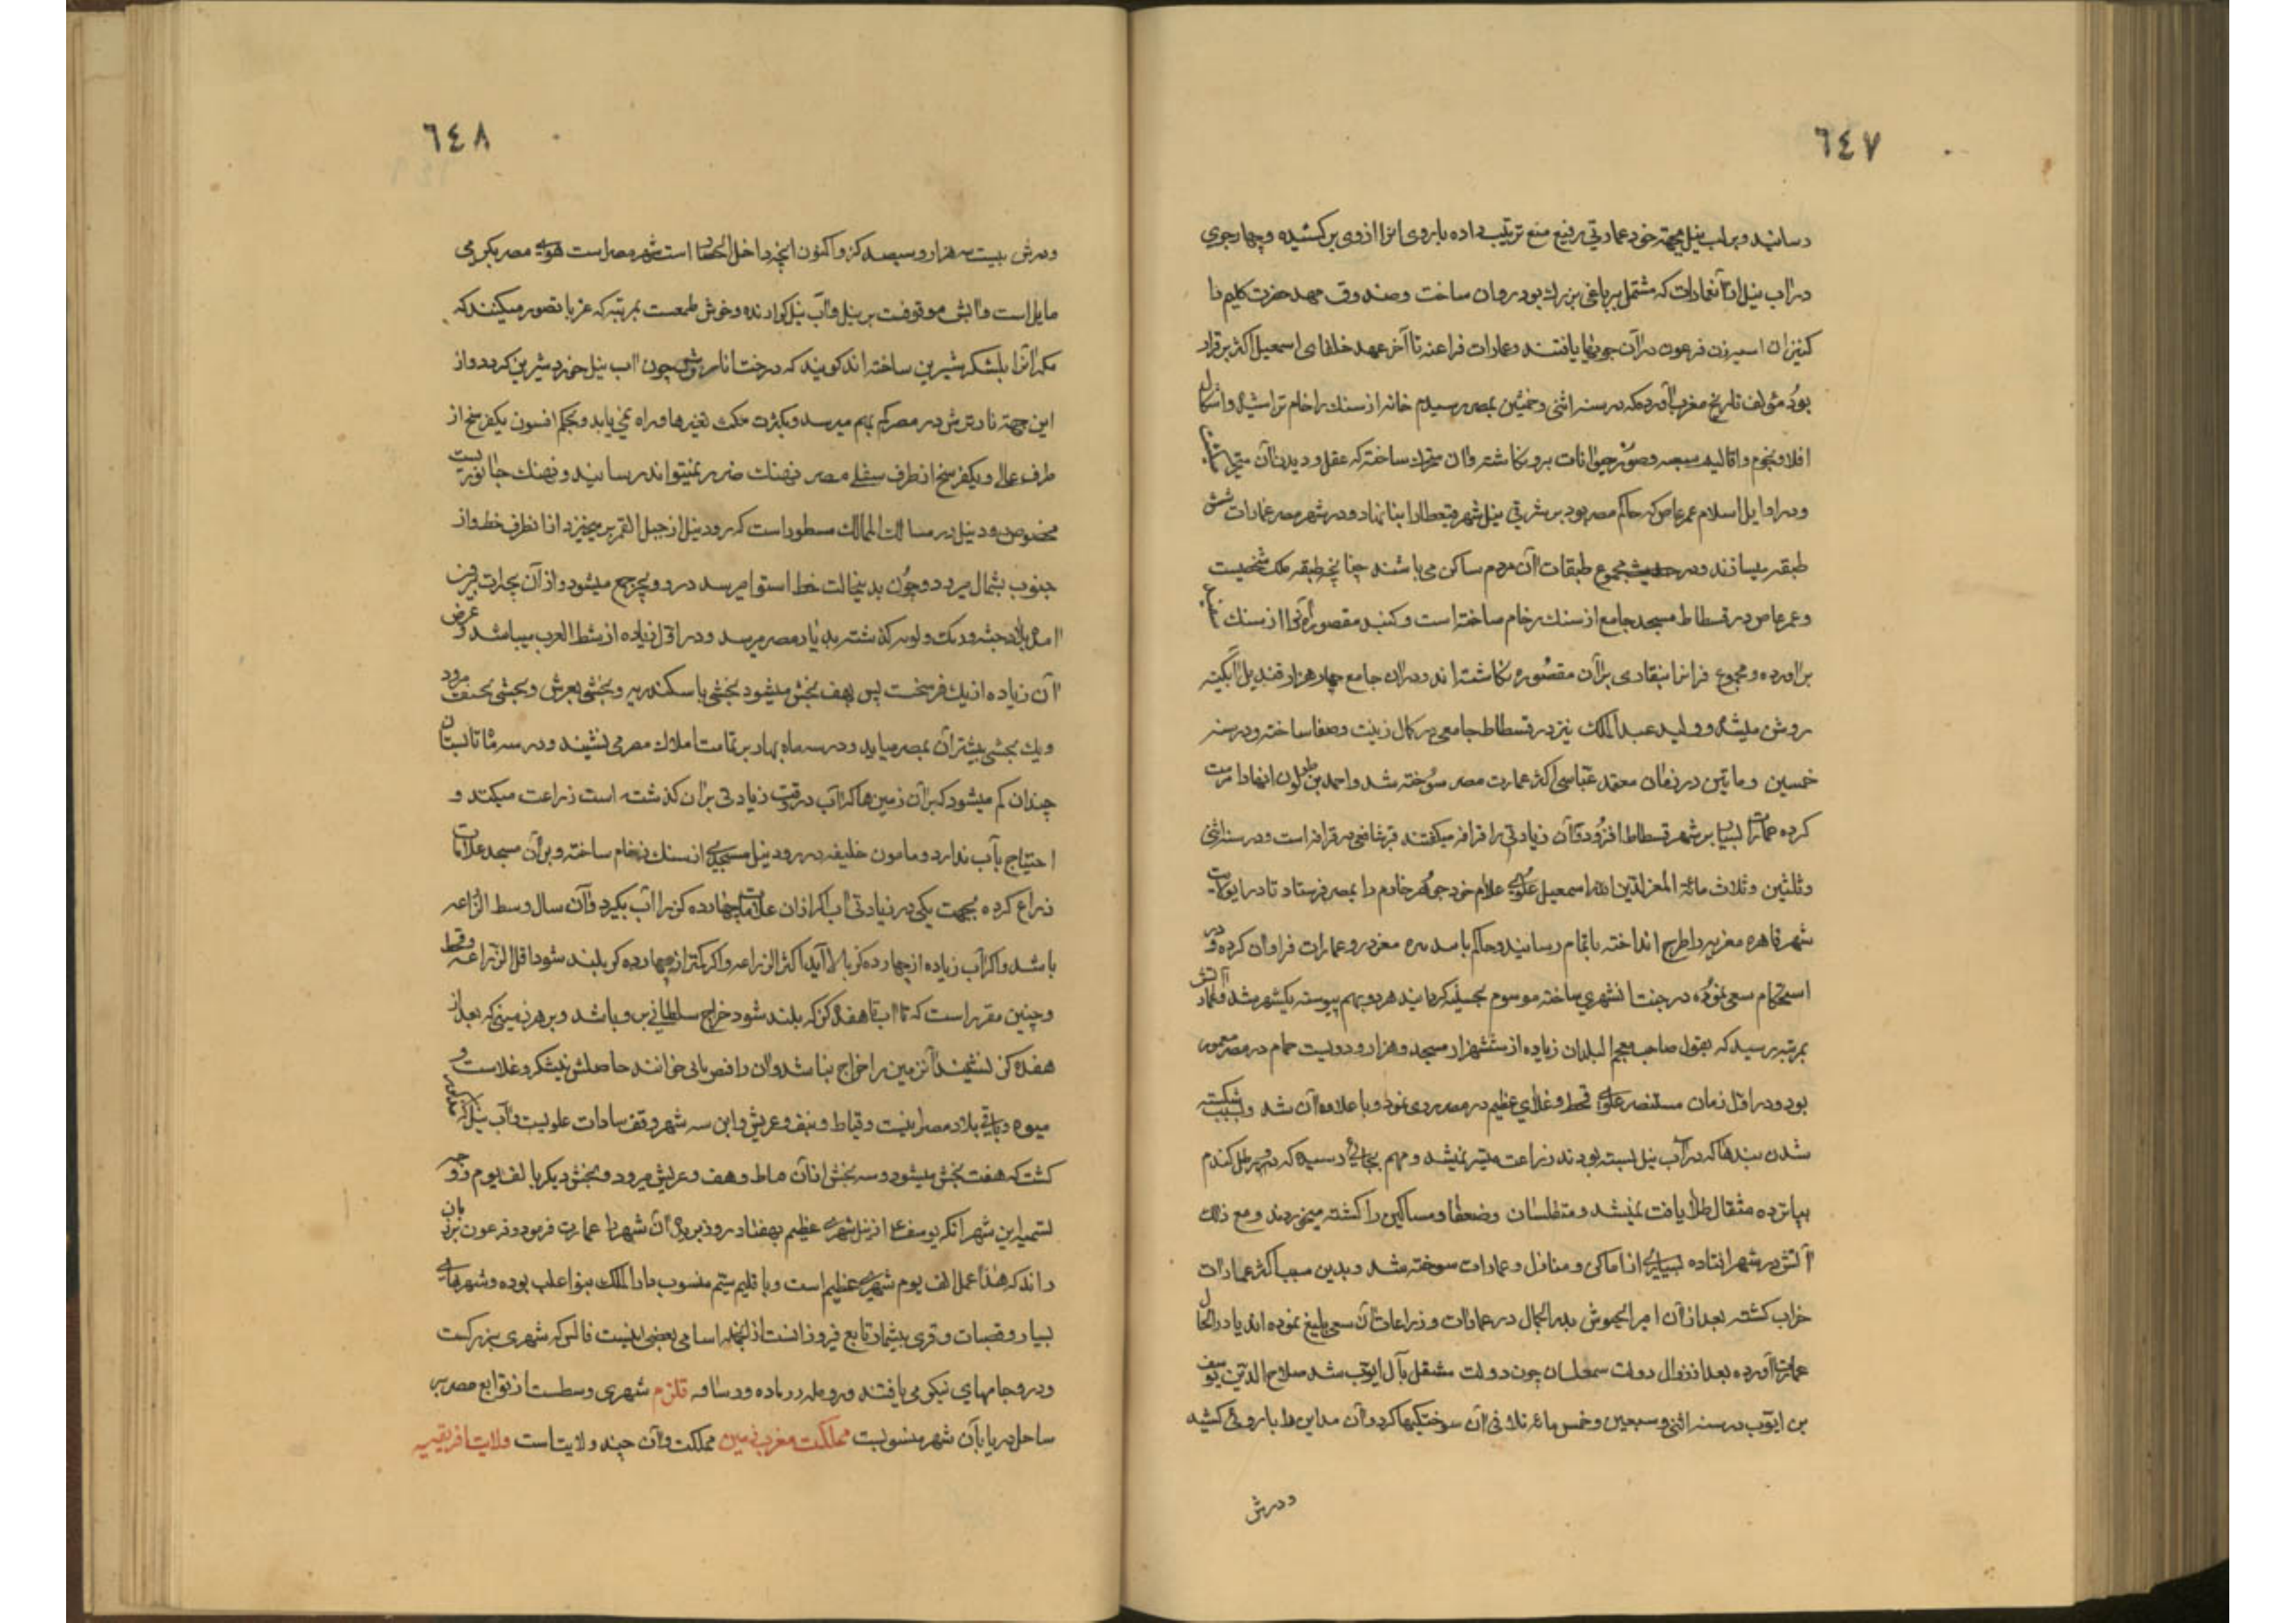 ٦٤٧
رسانید و بر لب نیل بجهته خود عمارتی رفیع منیع ترتیب داده باروی انرا از روی برکشیده و چهار جوی
در آب نیل از آنعمارات که مشتمل بر باغی بزرك بود روان ساخت و صندوق مهد حضرت کلیم را
کنیزان اسیه زن فرعون در آن جویها یافتند و عمارات فراعنه تا آخر عهد خلفای اسمعیل اکثر برقرار
بود مؤلف تاریخ مغرب آورده که در سنه اثنی و خمسین بمصر رسیدم خانه از سنك رخام تراشیده و اشکال
افلاك و نجوم و اقالیم سبعه و صور حیوانات برو نکاشته و آن متحرك ساخته که عقل و دیدن آن متحیر
و در اوایل اسلام عمر عاص که حاکم مصر بود بر شرقی نیل شهر فسطاط را بنا نهاد و در شهر مصر عمارات شش
طبقه میسازند و در مجموع طبقات آن مردم ساکن می باشند چنانچه طبقه ملک شخصیست
و عمر عاص در قسطاط مسجد جامع از سنك رخام ساخته است و کنبد مقصوره آنرا از سنك
براورده و مجموع قرانرا بنقاری بر آن مقصوره نکاشته اند و در ان جامع چهار هزار قندیل آبکینه
روشن میشد و ولید عبد الملك نیز در قسطاط جامعی در کمال زینت و صفا ساخته و در سنه
خمسین و مایتین در زمان معتمد عباسی اکثر عمارت مصر سوخته شد و احمد بن طولون انها را مرمت
کرده عمارات بسیار بر شهر قسطاط افزود و آن زیادتی را قرافه میکفتند قبر شافعی در قرافه است و در سنه اثنی
و ثلثین و ثلاث مائة المعز لدین الله اسمعیل علوی غلام خود جوهر خادم را بمصر فرستاد تا در
شهر قاهره معزیه را طرح انداخته باتمام رسانید و حاکم بامر معزدرو عمارات فراوان کرده و در
استحکام سعی نموده در جنت انشهری ساخته موسوم کردانید هر دو بهم پیوسته یکشهر شد
بمرتبه رسید که بقول صاحب معجم البلدان زیاده از ششهزار مسجد و هزار و دویست حمام در مصر معمور
بود و در اوّل زمان مستنصر علوی قحط و غلای عظیم در مصر روی نمود و با علاوه آن شد و بسبب شکسته
شدن بندها که در آب نیل بسته بودند زراعت میسّر نمیشد و مهم بجائی رسید که هر رطل کندم
بپانزده مثقال طلا یافت نمیشد و متفلسان و ضعفا و مساکین را کشته میخوردند و مع ذلك
آتش در شهر افتاده بسیاری از اماکن و منازل و عمارات سوخته شد و بدین سبب اکثر عمارات
خراب کشته بعد از آن امیر الجیوش بدر الجمال در عمارات و زراعات آن سعی بلیغ نموده اند یار در الحال
عمارات آورده بعد از زوال دولت چون دولت منتقل بآل ایوب شد صلاح الدین یوسف
بن ایوب در سنه اثنی و سبعین و خمس مائه تلافی آن سوختکیها کرد و آن مداین را باروئی کشید
و دورش
٦٤٨
و دورش بیست هزار و سیصد کز و اکنون انچه داخل الحصار است شهر مصر است هوای مصر بکرمی
مایل است و آبش موقوفست بر نیل و آب نیل کوارنده و خوش طعمست بمرتبه که عربا تصور میکنند که
مکر آنرا بشکر شیرین ساخته اند کویند که درخت انار ترش چون آب نیل خورد شیرین کردد و از
این جهة نار ترش در مصر کم بهم میرسد و بکثرت مکث تغیر ها و راه نمی یابد و بحکم افسون یکفرسخ از
طرف عالی و یکفرسخ از طرف سفلی مصر نهنك ضرر نمیتواند رسانید و نهنك جانوریست
مخصوص رود نیل در مسالك الممالك مسطور است که رود نیل از جبل القمر برمیخیزد از انطرف خط و از
جنوب بشمال میرود و چون بدینجالت خط استوا میرسد در دو بحر جمع میشود و از آن بحار بیرون
آمده ببلاد حبشه و کذشته بدیار مصر میرسد و در اقل زیاده از شط العرب میباشد و عرض
آن زیاده از یك فرسخست پس بهفت بخش میشود بخشی باسکندریه و بخشی بعرش و بخشی بحنف میرود
و یك بخشی بیشتر آن بمصر میاید و در سه ماه بهار بر تمامت املاك مصر می نشیند و در سه ماه تابستان
چندان کم میشود که بر آن زمین ها که آب در وقت زیادتی بران کذشته است زراعت میکند و
احتیاج بآب ندارد و مامون خلیفه در رود نیل مسجدی از سنك رخام ساخته و بر آن مسجد علامات
ذراع کرده بجهت یکی در زیادتی آب اکر از ان علامات چهارده کز را آب بکیرد و آن سال وسط الزراعه
باشد و اکر آب زیاده از چهارده کز بالا آید اکثر الزراعه و اکر کمتر از چهارده کز بلند شود اقل الزراعه و قحط
و چنین مقرر است که تا آب تا هفده کز که بلند شود خراج سلطانی برو باشد و بر هر زمینی که بعد از
هفده کز نشیند آنزمین را خراج نباشد و آن را فض بانی خوانند حاصلش نیشکر و غلاست و
میوه و باقی بلاد مصر اینست و قیاط و نیف و عریش و این سه شهر وقف سادات علویست و آب نیل که
کشت که هفت بخش میشود و سه بخش از آن ماط و هف و عریش میرود و بخش دیکر بالف یوم رود
تسمیه این شهر انکه یوسف ع از نیل شهری عظیم بهفتاد روز برید آن شهر را عمارت فرمود و فرعون
راند که هذا عمل الف یوم شهری عظیم است و با قلیم سیّم منسوب دار الملك بنو اغلب بوده و شهرهای
بسیار و قصبات و قری بیشمار تابع فرو زانست از انجمله اسامی بعضی اینست فالس که شهری بزرکست
و در و جامهای نیکو می یافتند قلزم شهری وسطست از توابع مصر بر
ساحل دریا بآن شهر منسوبست مملکت مغرب زمین مملکت و آن چند ولایت است ولایت افریقیه